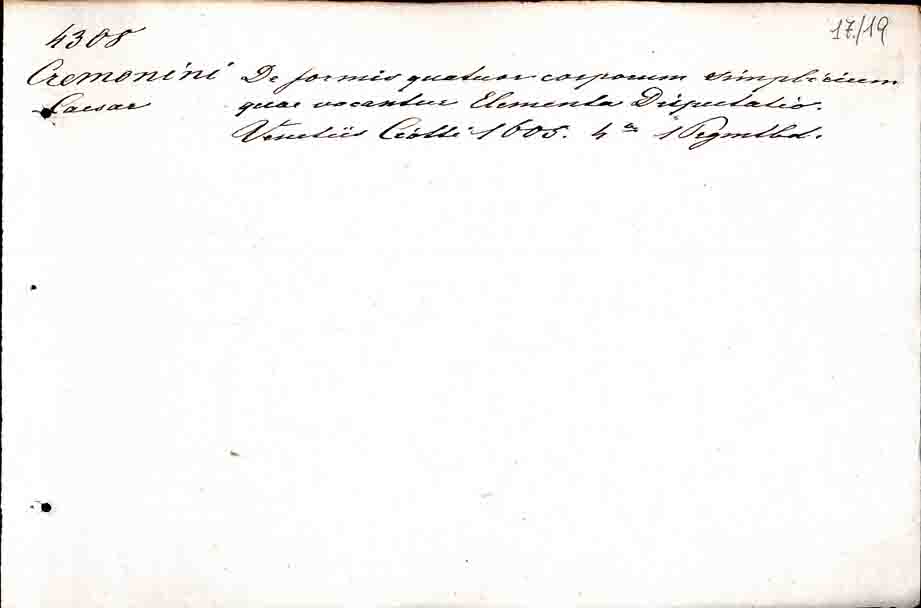 4308
17./19
Cremonini De formis quatuor corporum simplicium
Caesar quae vocantur Elementa Disputatio.
Venetiis Ciotti 1605. 4° 1 Pergmtbd.